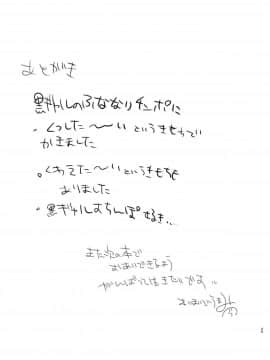 あとがき
黒ギャルのふたなりチンポに
・くっした〜〜い というきもちで
かきました
。くわえた〜い というきもちも
ありました
・黒ギャルすちんぽせるき…
また次の本で
おあいできるよう
がんばってはきたいです